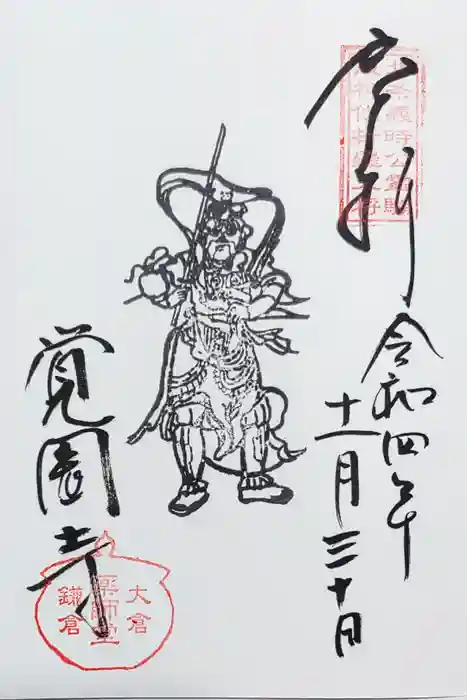 奉拝
北条義時公霊験
令和四年
十一月三十日
覚園寺
大倉
薬師堂
鎌倉